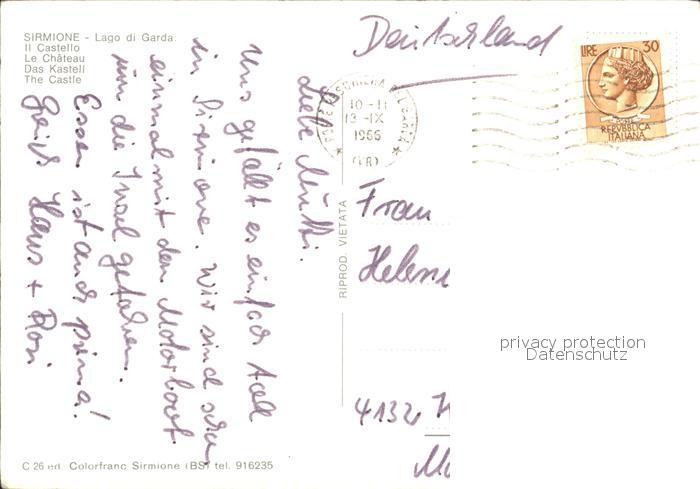 SIRMIONE - Lago di Garda:
Il Castello
Le Château
Das Kastell
The Castle
Liebe Mutti!
Uns gefällt es einfach toll
in Sirmione. Wir sind schon
einmal mit dem Motorboot
um die Insel gefahren.
Essen ist auch prima!
Hans + Rosi
C 26 ed. Colorfranc Sirmione (BS) tel. 916235
RIPROD. VIETATA
Deutschland
10-11
13-IX
1966
(VR)
LIRE 30
REPVBBLICA
ITALIANA
Frau
Helene
4132
privacy protection
Datenschutz